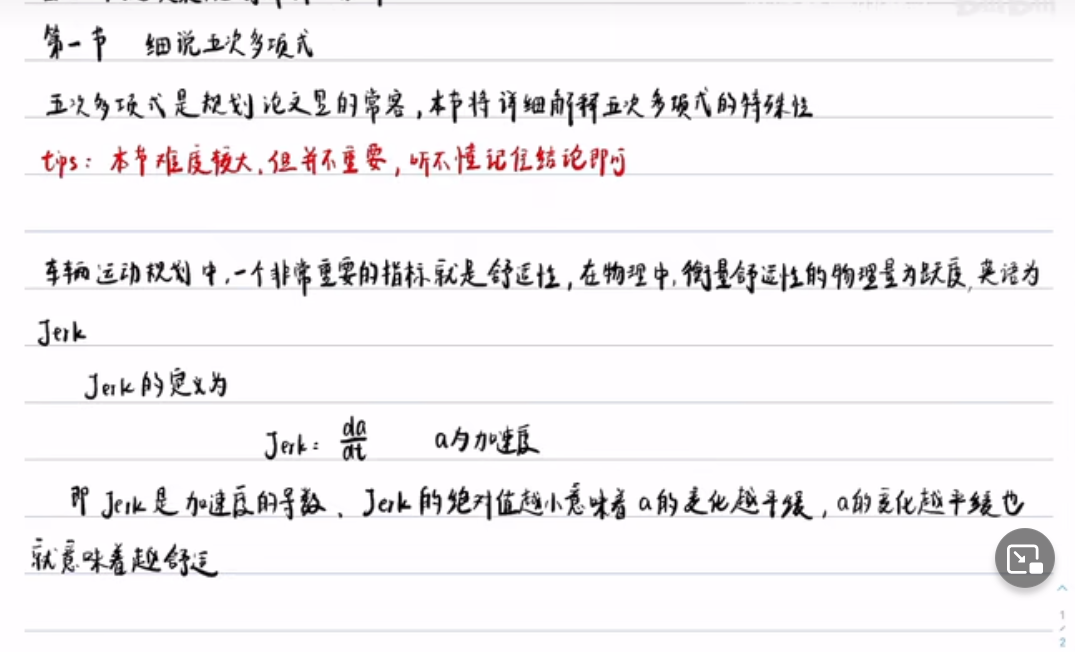 第一节 细说五次多项式
五次多项式是规划论文里的常客,本节将详细解释五次多项式的特殊性
tips: 本节难度较大,但并不重要,听不懂记住结论即可
车辆运动规划中,一个非常重要的指标就是舒适性,在物理中,衡量舒适性的物理量为跃度,英语为
Jerk
Jerk的定义为
Jerk: da/dt a为加速度
即 Jerk是加速度的导数、Jerk的绝对值越小意味着a的变化越平缓,a的变化越平缓也
就意味着越舒适
1
/
2